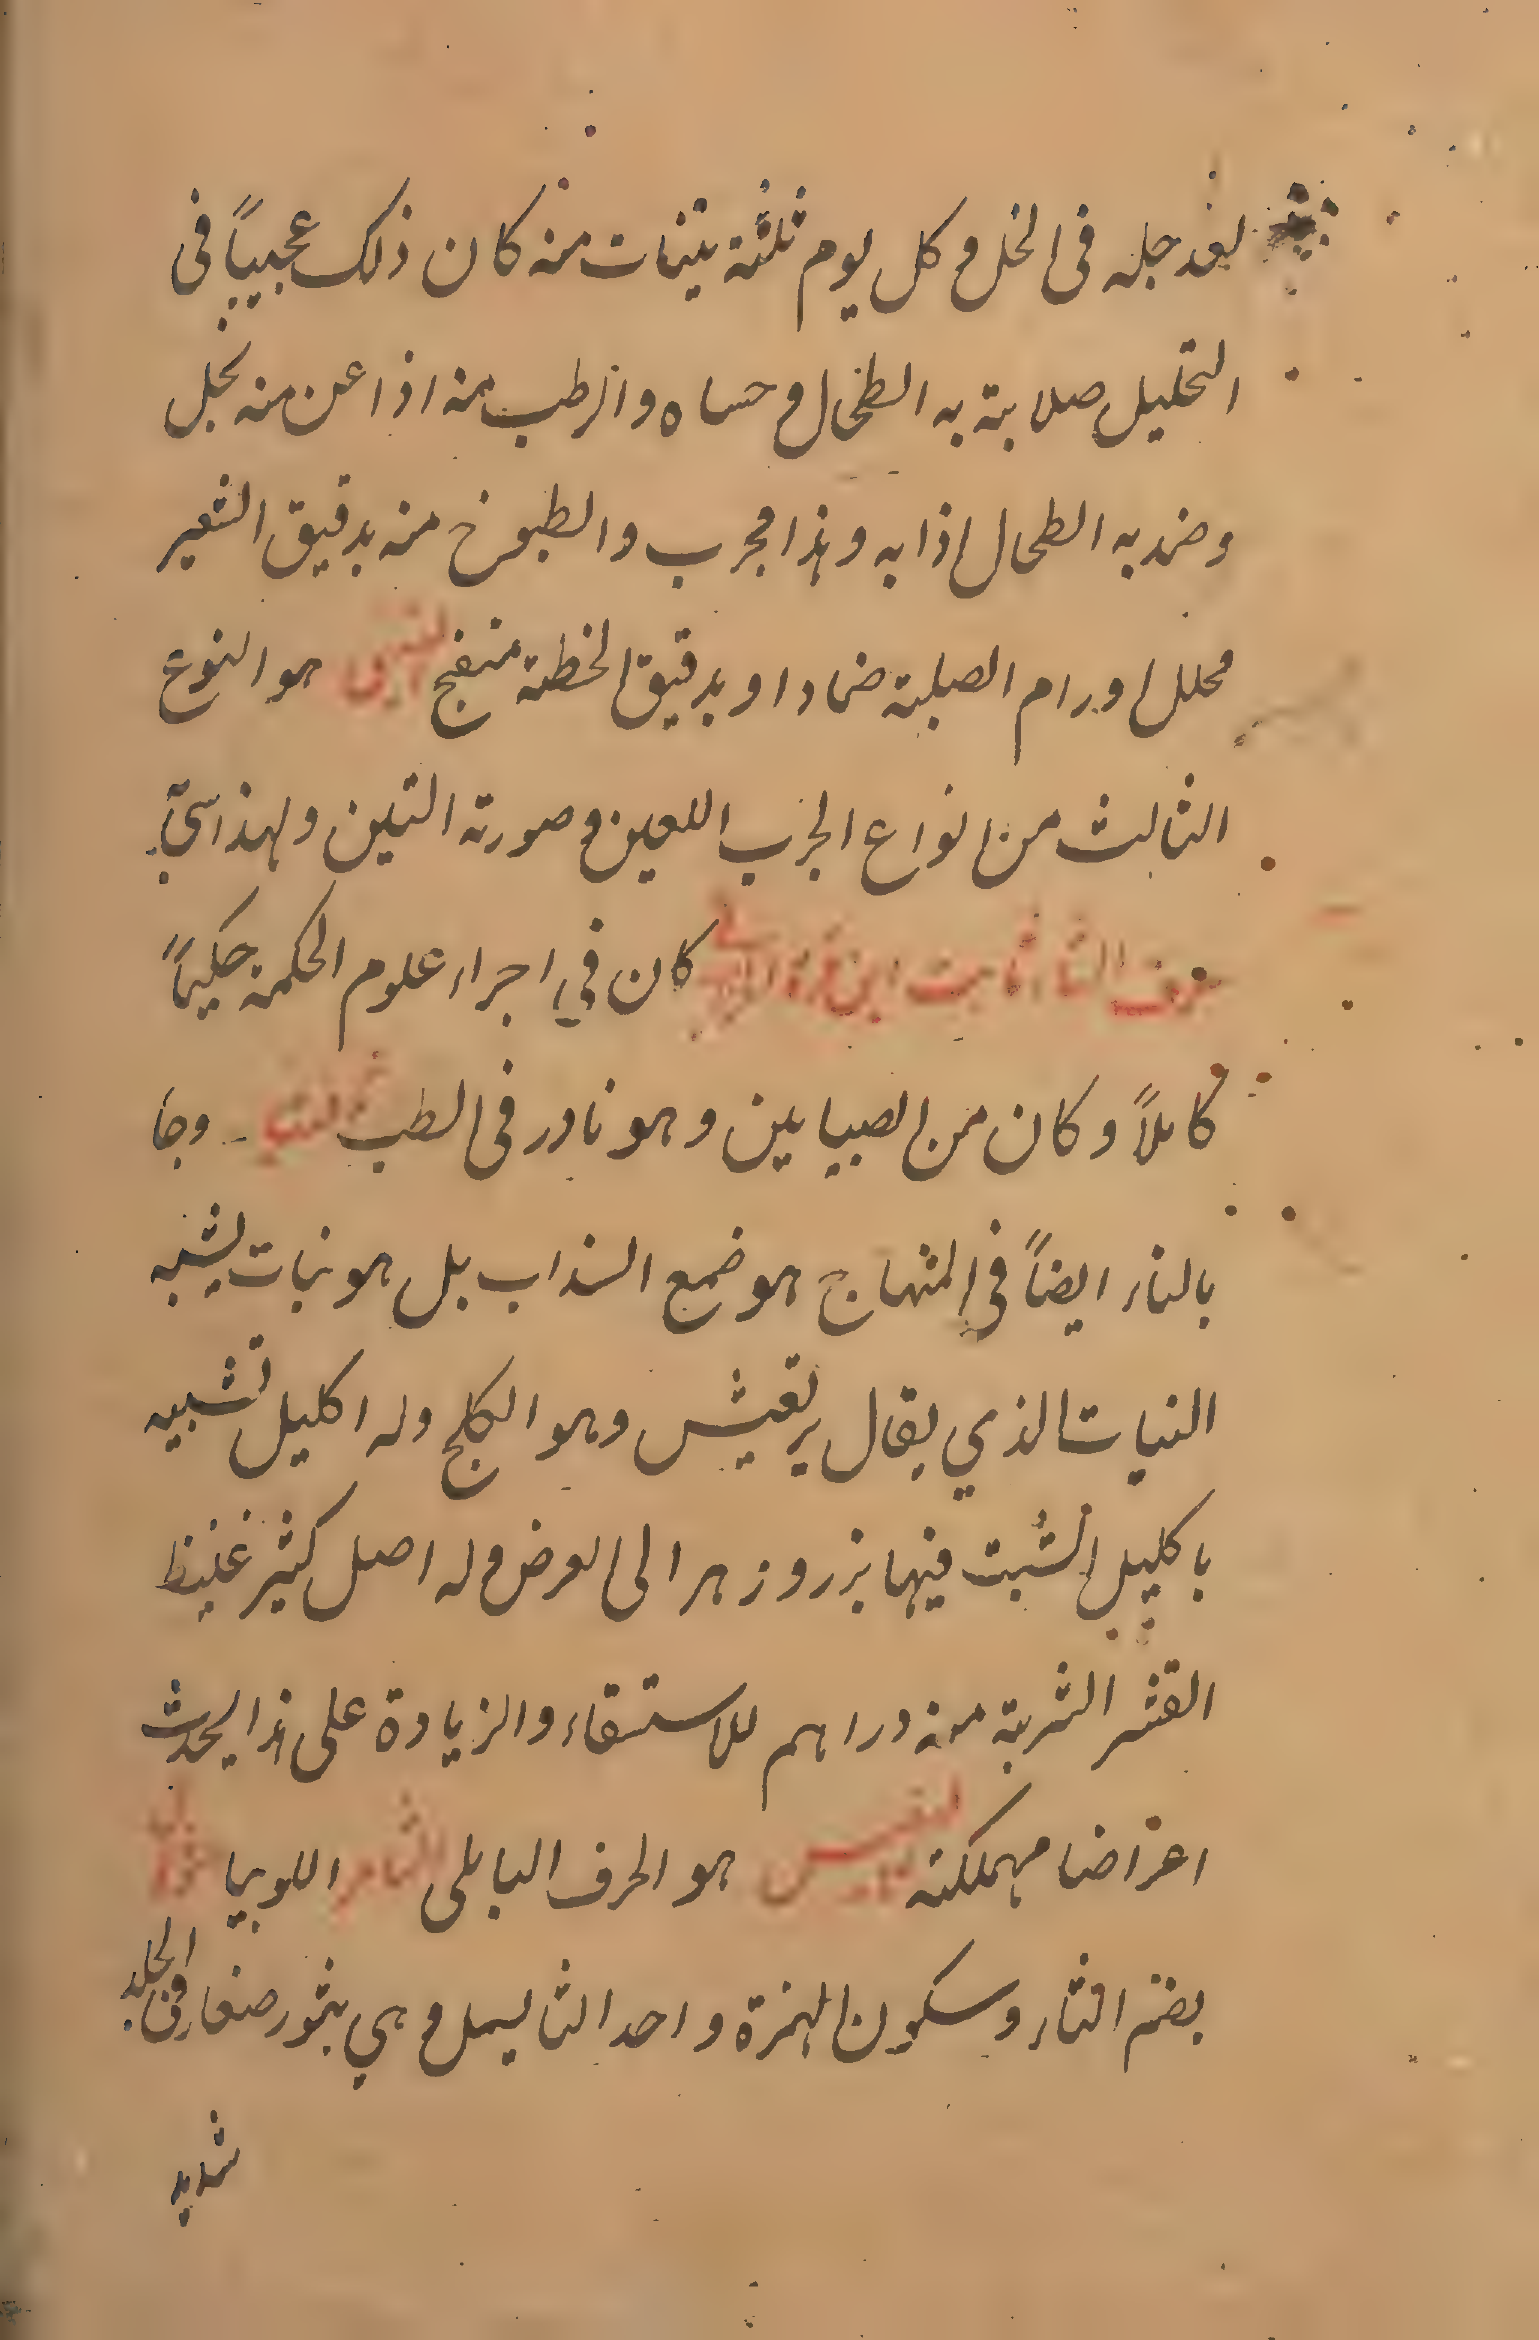 بعد جله فى الخل و كل يوم ثلثة تينات منه كان ذلك عجيباً فى
التحليل صلابته به الطحال و حساه و الرطب منه اذا عن منه بخل
وضمد به الطحال اذابه وهذا مجرب والطبوخ منه بدقيق الشعير
محلل اورام الصلبة ضمادا و بدقيق الحنطة منفج التينى هو النوع
الثالث من انواع الجرب اللعين و صورته التين ولهذا سمى
حرف الثاء ثابت ابن قرة كان في اجراء علوم الحكمة حكيماً
كاملاً و كان من الصبايين وهو نادر فى الطب وجا
بالتاء ايضاً فى المنهاج هو ضمغ السذاب بل هو نبات يشبه
النبات الذي يقال يرتعيش وهو الكلخ وله اكليل تشبيه
باكليل الشبت فيها بزر و زهر الى العرض و له اصل كثير غليظ
القشر الشربة منه دراهم للاستسقاء والزيادة على هذا يحدث
اعراضا مهملكته هو الحرف البابلى الثامر اللوبيا
بضم الثاء وسكون الهمزة واحد الثاليل و هي بثور صغار فى الجلد
شديد